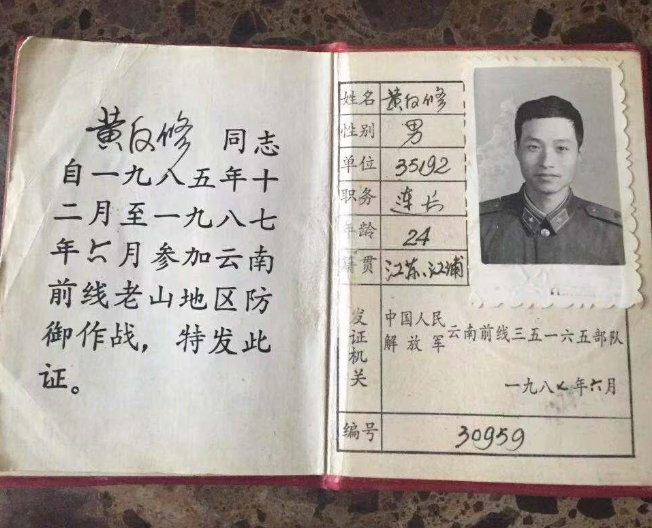 黄自修 同志
自一九八五年十
二月至一九八七
年六月参加云南
前线老山地区防
御作战，特发此
证。
姓名 黄自修
性别 男
单位 35192
职务 连长
年龄 24
籍贯 江苏、江浦
发证机关 中国人民解放军 云南前线三五一六五部队
一九八七年六月
编号 30959